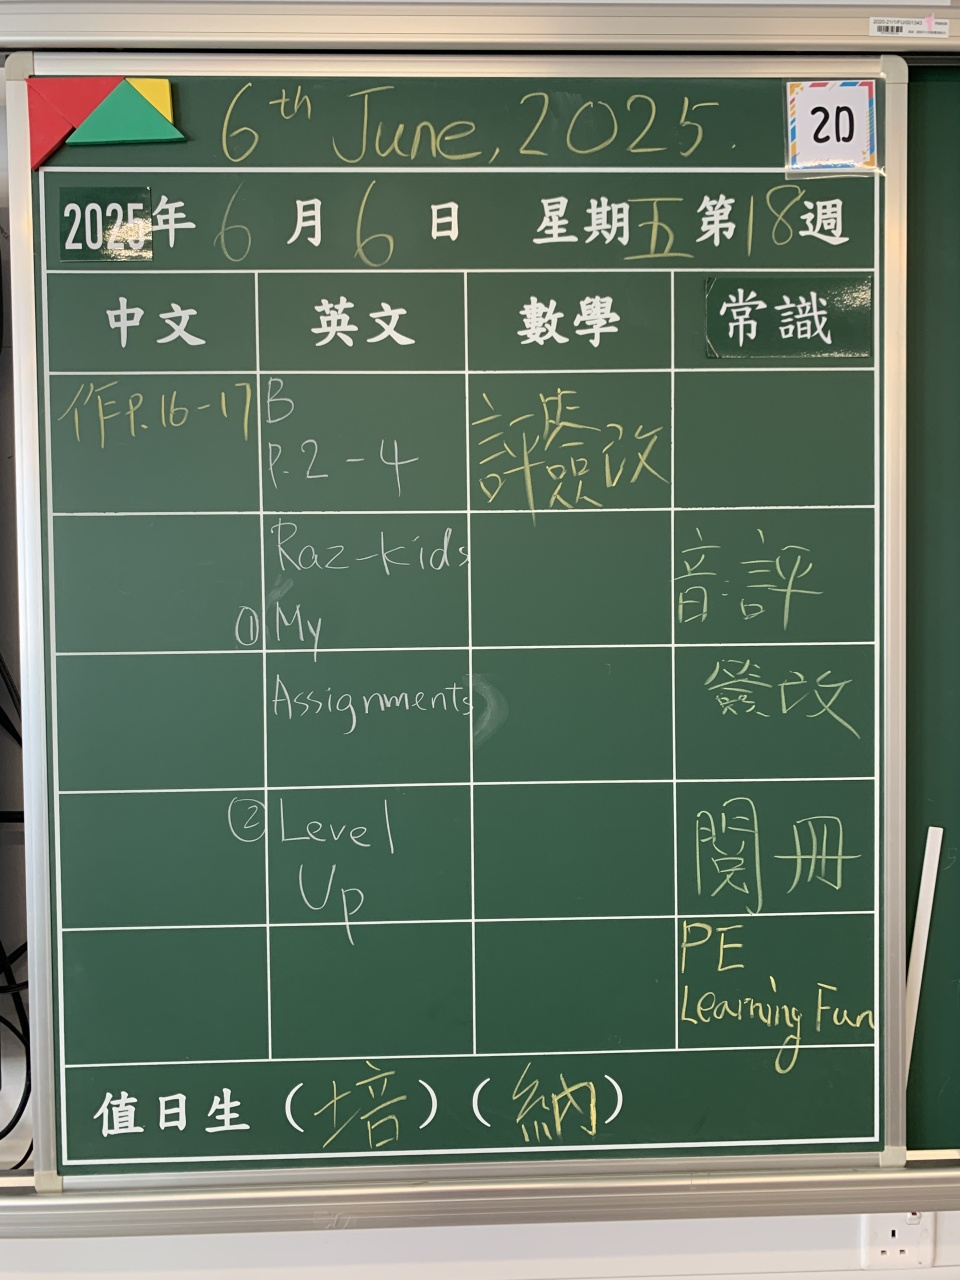 6th June, 2025.
2D
2025年6月6日 星期五 第18週
中文 英文 數學 常識
作P.16-17
B
P.2-4
Raz-kids
① My
Assignments
② Level
Up
評簽改
音:評
簽改
閱冊
PE
Learning Fun
值日生(培)(納)